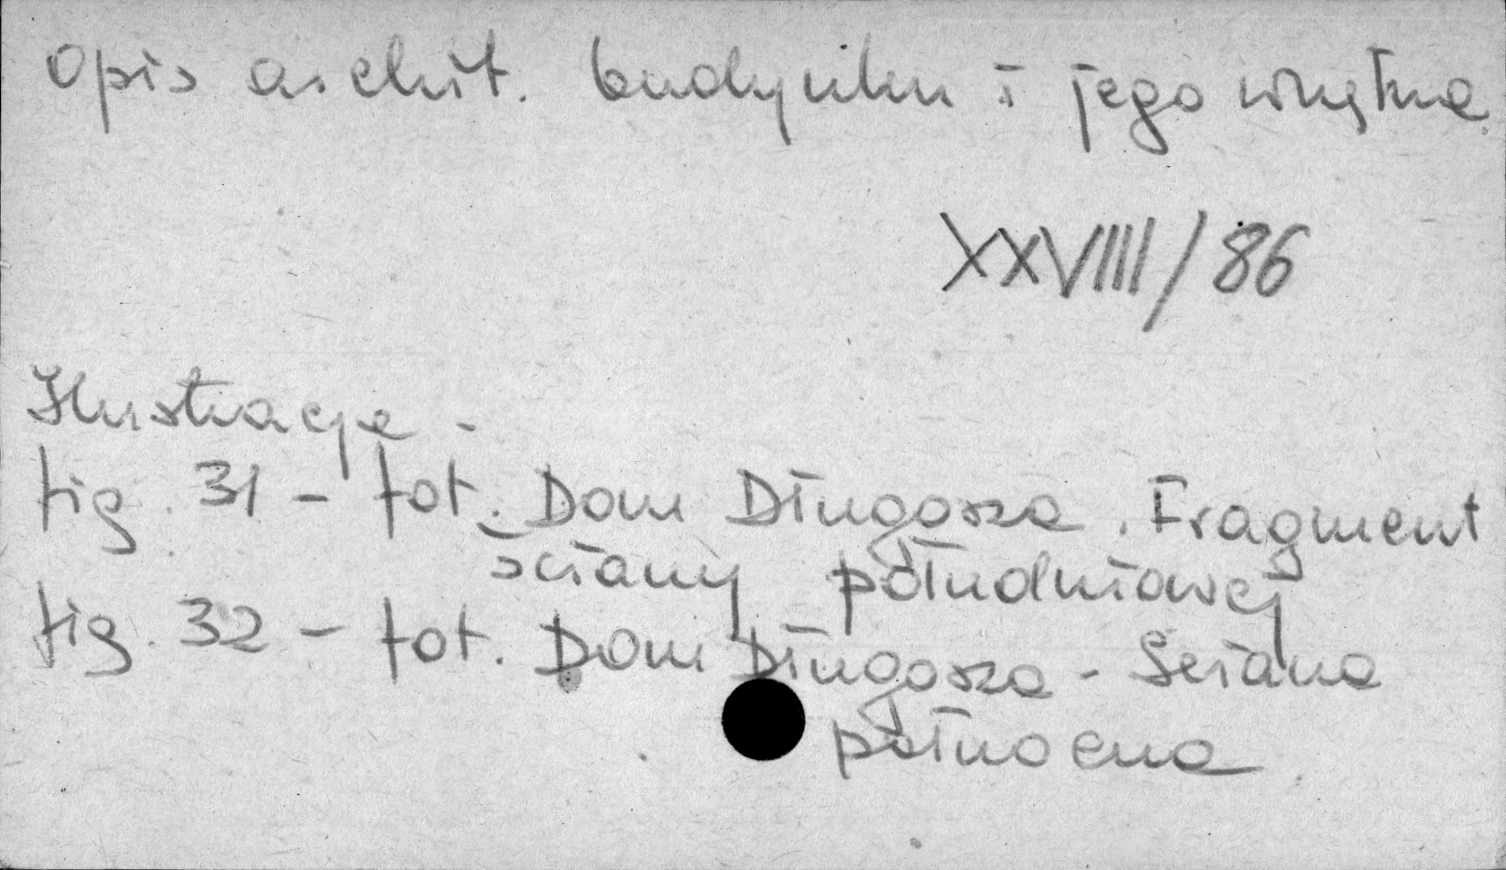 Opis archit. budynku i jego wnętrza.
XXVIIII/86
Ilustracje -
fig. 31 - fot. Dom Długosza. Fragment
ściany południowej
fig. 32 - fot. Dom Długosza - Ściana
północna.